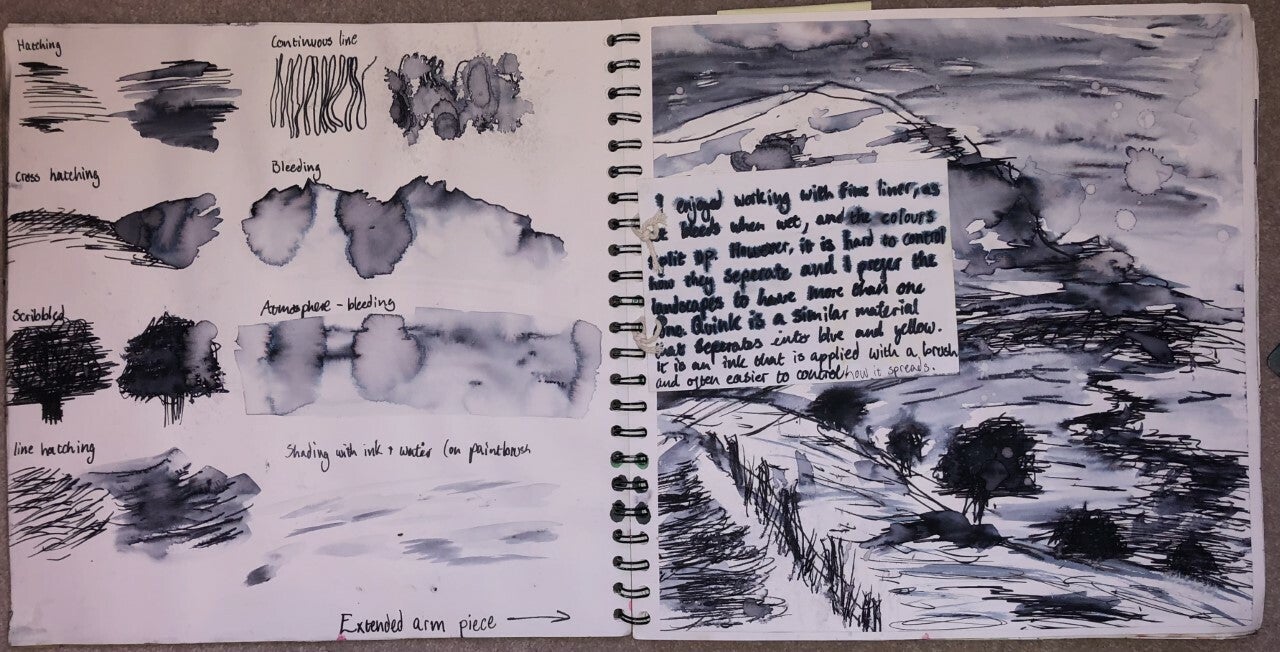 Hatching
Continuous line
cross hatching
Bleeding
Scribbled
Atmosphere - bleeding
line hatching
Shading with ink + water (on paintbrush
Extended arm piece →
I enjoyed working with fine liner, as
it bleeds when wet, and the colours
split up. However, it is hard to control
how they seperate and I prefer the
landscapes to have more than one
tone. Quink is a similar material
that seperates into blue and yellow.
it is an ink that is applied with a brush
and often easier to control how it spreads.